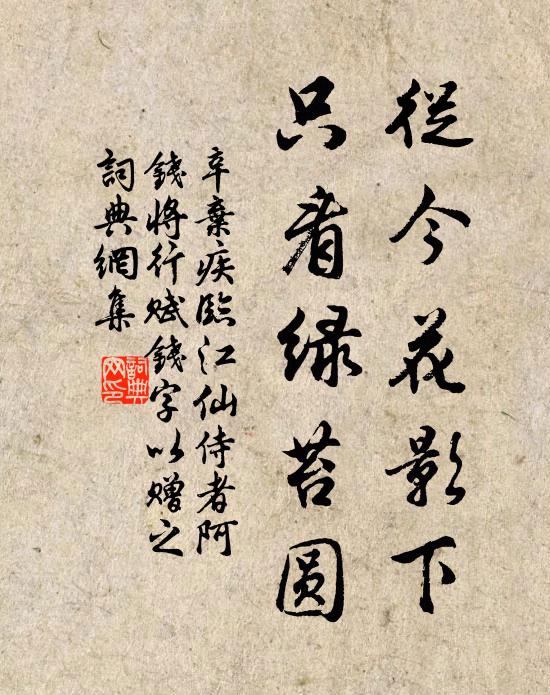 從今花影下
只看绿苔圆
辛棄疾臨江仙侍者阿
錢將行賦錢字以赠之
詞典網集
詞典
网印